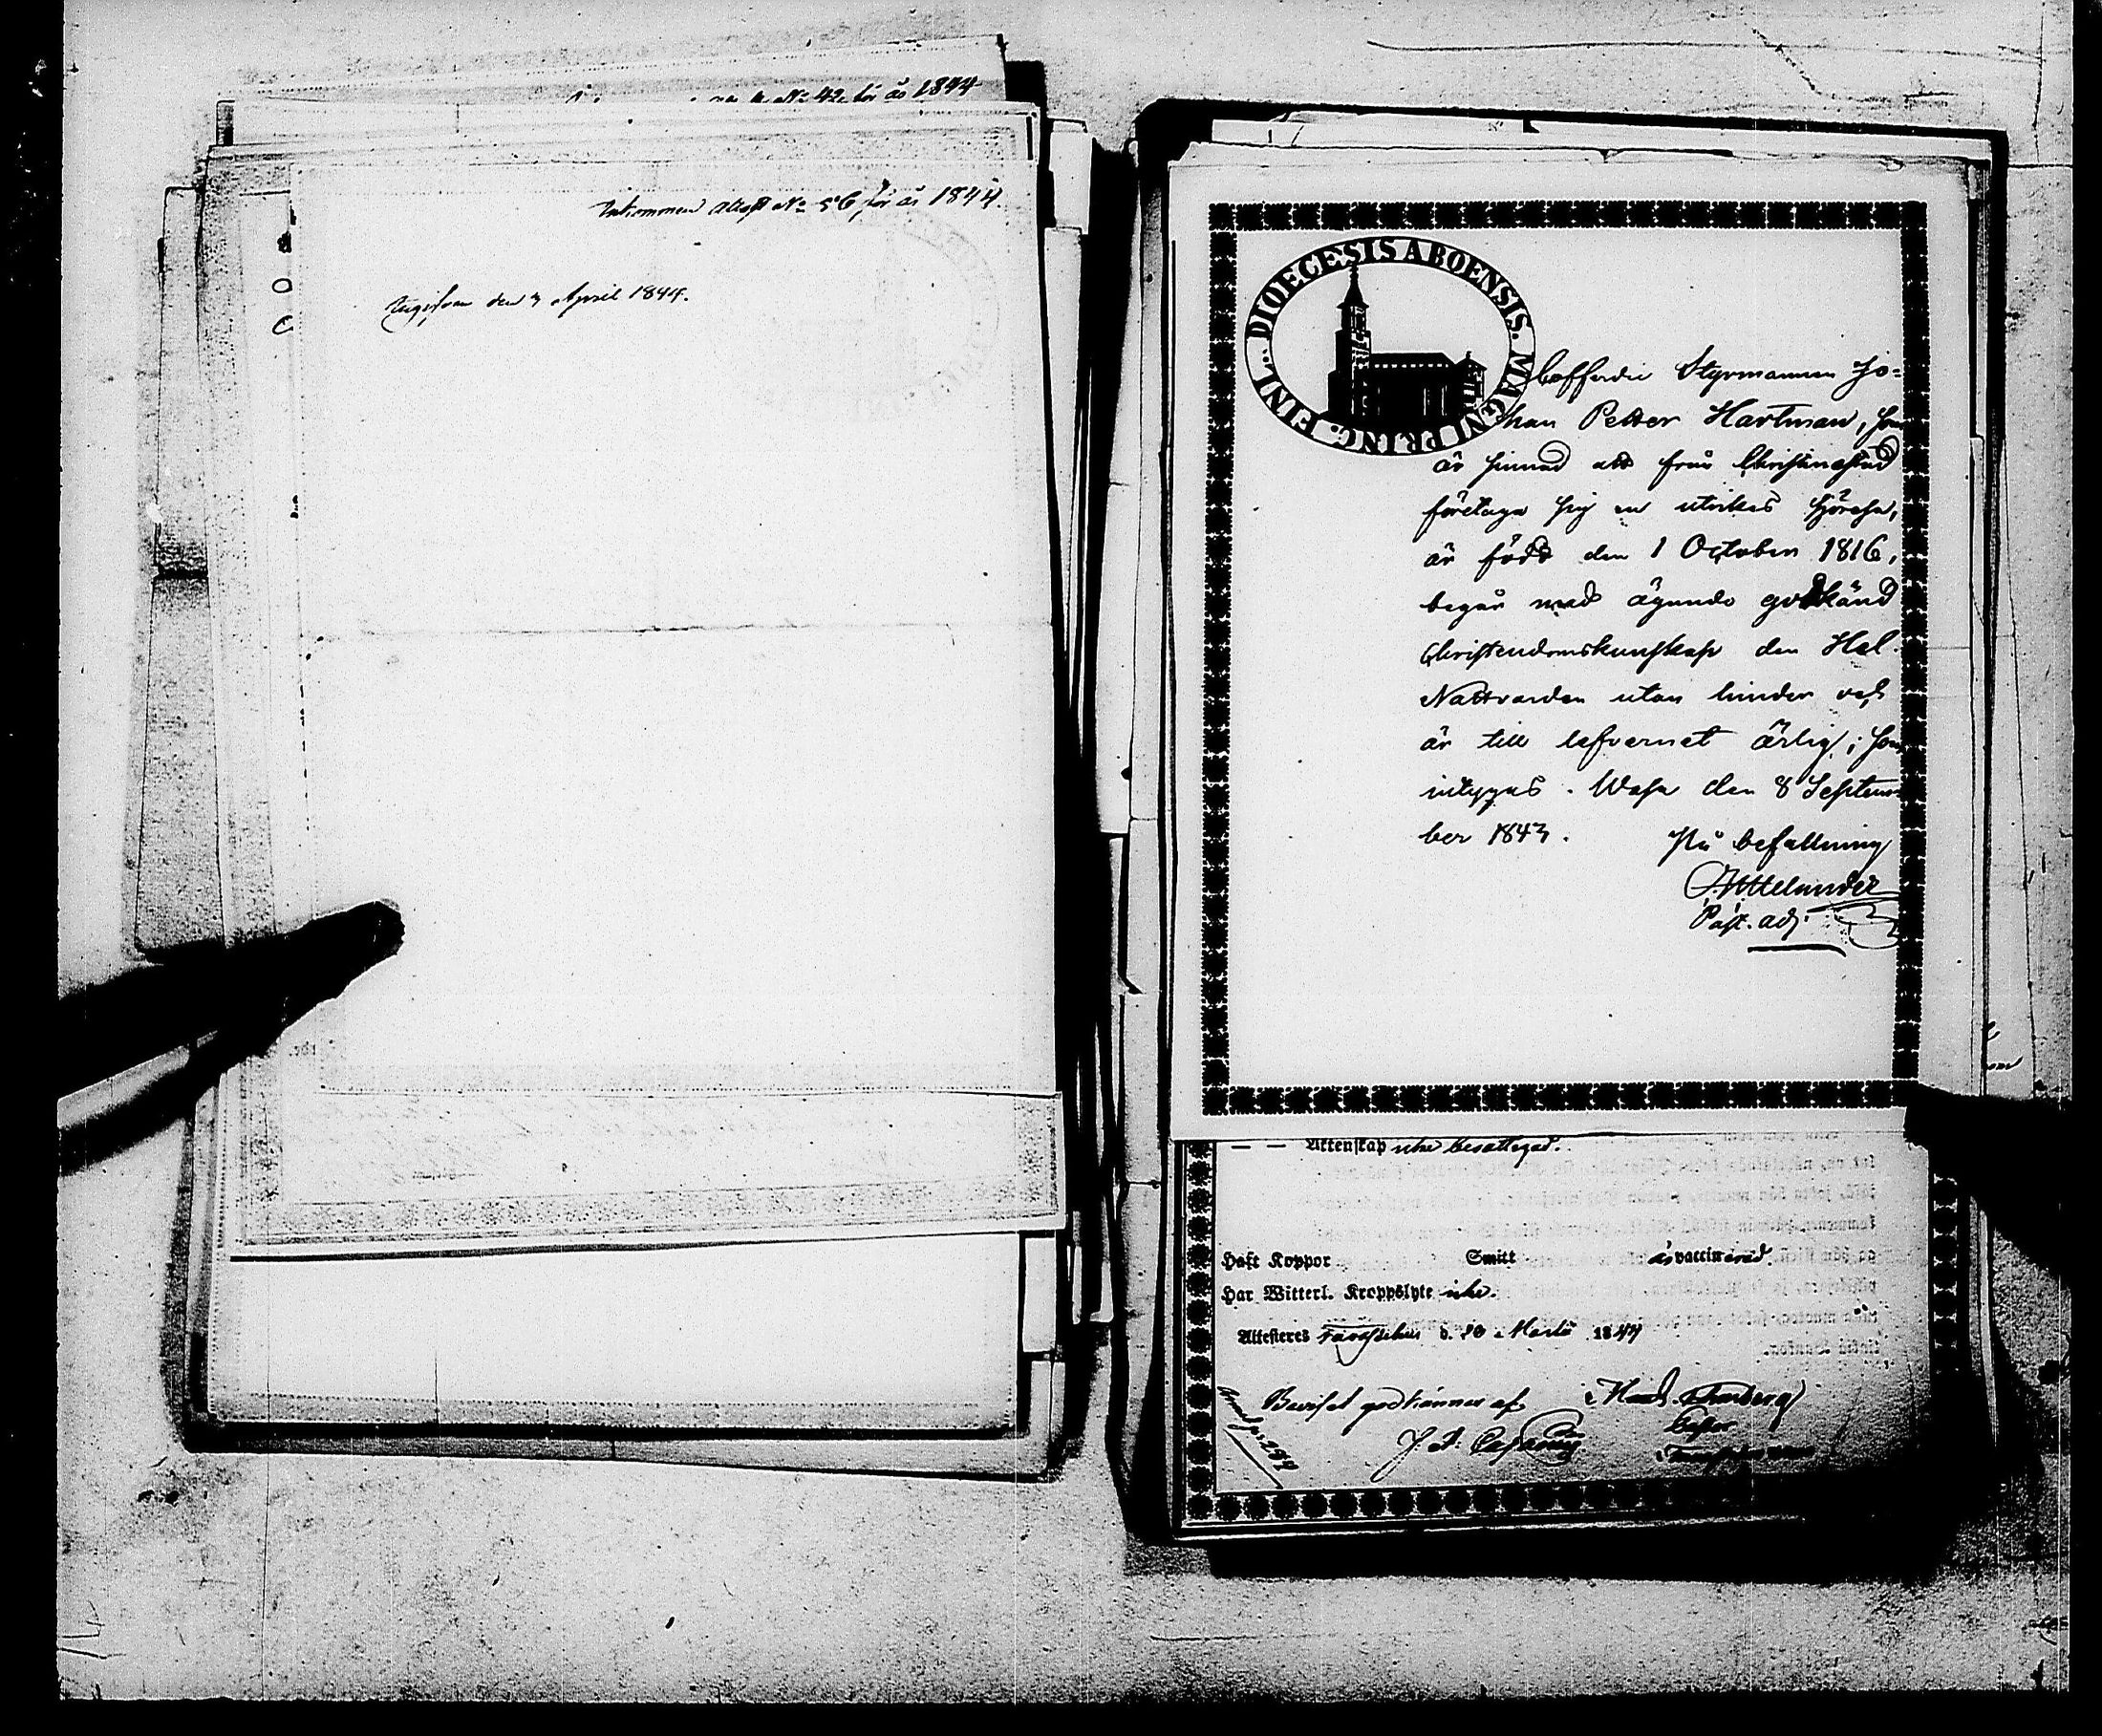 No 42 för år 1844
Inkommen Attest No 56 för år 1844.
Ungifven den 3 April 1844.
DIOECESIS ABOENSIS. MAGNI PRINC. FINL.
Coffardie Styrmannen Jo=
han Petter Hartman, som
är sinnad att från Christinestad
företaga sig en utrikes sjöresa,
är född den 1 October 1816,
begår med ägande godkänd
Christendomskunskap den Hel.
Nattvarden utan hinder och
är till lefvernet ärlig; som
intygas. Wasa den 8 Septem
ber 1843.
På befallning
Past. adj.
— — Äktenskap icke besattegad.
Haft Koppor Smitt är vaccinerad.
Har Witterl. Kroppslyte icke.
Attesteres d. 10 Martii 1844
Beviset godkännes af
J. A.